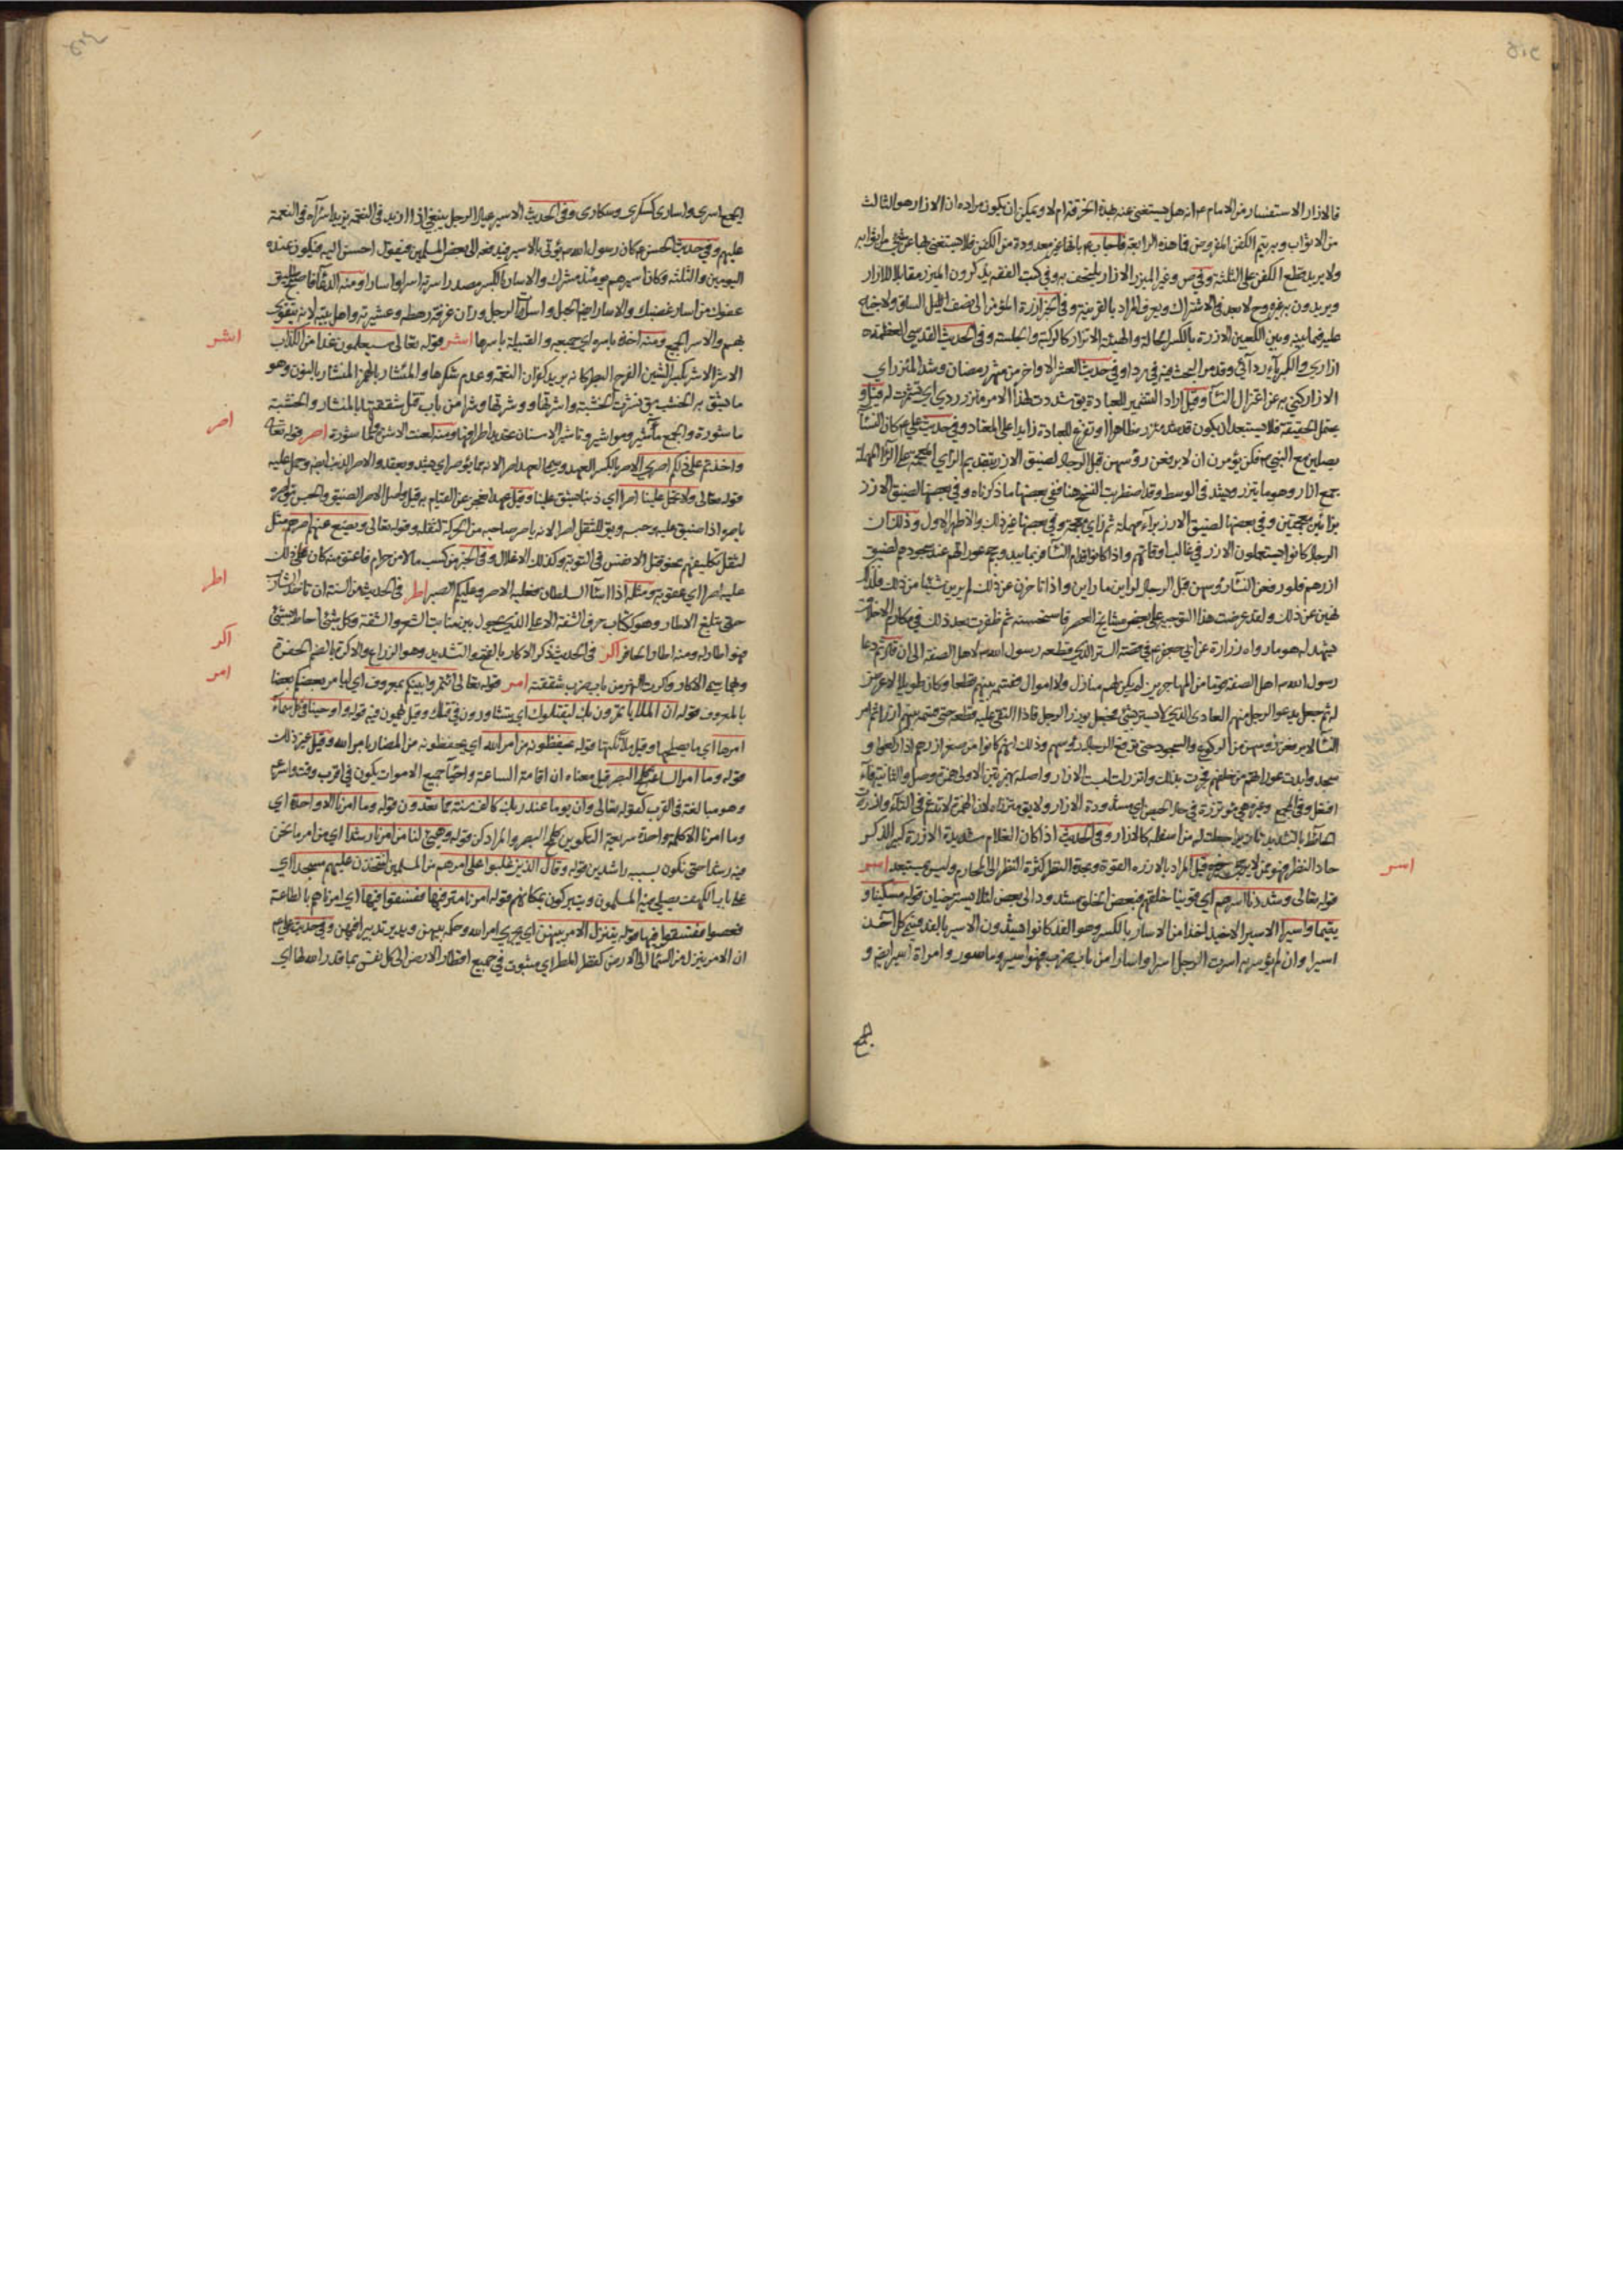 فالازار الاستفسار من الامام م انه هل يستغنى عنه بهذه الخرقة ام لا ويمكن ان يكون مراده ان الازار هو الثالث
من الاثواب وبه يتم الكفن المفروض فما هذه الرابعة فاجاب م بانها غير معدودة من الكفن فلا يستغنى بها عن شئ من اثوابه
ولا يريد بقطع الكفن على الثلثة وفي ص وغيره الميزر الازار يلتحف به وفي كتب الفقه يذكرون الميزر مقابلا للازار
ويريدون به غيره وح لا بعد في الاشتراك ويعرف المراد بالقرينة وفي الخبر ازرة المؤمن الى نصف الليل الساق ولا جناح
عليه فيما بينه وبين الكعبين الازرة بالكسر الحالة والهيئة الاتزار كالركبة والجلسة وفي الحديث القدسي العظمة
ازاري والكبرياء ردائي وقد مر البحث فيه في ردا وفي حديث العشر الاواخر من شهر رمضان وشد المئزر اي
الازار كنى به عن اعتزال النساء وقيل اراد التشمير للعبادة يق شددت لهذا الامر مئزري اي تشمرت له قيل و
يحتمل الحقيقة فلا يستبعد ان يكون قد شد مئزره ظاهرا وتفرغ للعبادة زايدا على المعتاد وفي حديث علي م كان النساء
يصلين مع النبي ص فكن يؤمرن ان لا يرفعن رؤسهن قبل الرجال لضيق الازر بتقديم الزاي المعجمة على الراء المهملة
جمع ازار وهو ما يتزر ويشد في الوسط وقد اضطربت النسخ هنا ففي بعضها ما ذكرناه وفي بعضها لضيق الازز
بزائين معجمتين وفي بعضها لضيق الارز براء مهملة ثم زاي معجمة وفي بعضها غير ذلك والاظهر الاول وذلك ان
الرجال كانوا يستعملون الازر في غالب اوقاتهم واذا كانوا قدام النساء فربما يبدو حجم عوراتهم عند سجودهم لضيق
ازرهم فلو رفعن النساء رؤسهن قبل الرجال لراين ما راين واذا تاخرن عن ذلك لم يرين شيئا من ذلك فلذا
نهين عن ذلك ولقد عرضت هذا التوجيه على بعض مشايخ العصر فاستحسنه ثم ظفرت بعد ذلك في مكارم الاخلاق
يشهد له هو ما رواه زرارة عن ابي جعفر م في قصة الستر الذي قطعه رسول الله ص لاهل الصفة الى ان قال ثم دعا
رسول الله ص اهل الصفة قوما من المهاجرين لم يكن لهم منازل ولا اموال فقسمه بينهم قطعا وكان طويلا لا عرض
له ثم جعل يدعو الرجل منهم العاري الذي لا يستر بشئ فجعل يوزر الرجل فاذا التقى عليه قطعه حتى قسمه بينهم ازرا ثم امر
النساء لا يرفعن رؤسهن من الركوع والسجود حتى يرفع الرجال رؤسهم وذلك انهم كانوا من صغر ازرهم اذا ركعوا و
سجدوا بدت عوراتهم من خلفهم فجرت بذلك واتزرت لبست الازار واصله بهمزتين الاولى همزة وصل والثانية فاء
افتعل وفي المجمع وغيره هي مؤتزرة في حال الحيض اي مشدودة الازار ولا يق متزرة لان الهمزة لا تدغم في التاء وازرت
الحائط بالتشديد تازيرا جعلت له من اسفله كالازار وفي الحديث اذا كان الغلام شديدة الازرة كبير الذكر
حاد النظر فهو عن لا يرجى خيره قيل المراد بالازره القوة وبحدة النظر كثرة النظر الى المحارم وليس ببعيد اسر
قوله تعالى وشددنا اسرهم اي قوينا خلقهم فبعض الخلق مشدود الى بعض لئلا يسترخيان قوله مسكينا و
يتيما واسيرا الاسير الاخيذ اخذا من الاسار بالكسر وهو القد كانوا يشدون الاسير بالقد فسمي كل اخذ
اسيرا وان لم يؤسر به اسرت الرجل اسرا واسارا من باب ضرب فهو اسير وماسور وامراة اسير ايض و
اسر
الجمع اسرى واسارى كسكرى وسكارى وفي الحديث الاسير عيال الرجل ينبغي اذا ازيد في النعمة يزيد اسراءه في النعمة
عليهم وفي حديث الحسن م كان رسول الله ص يؤتى بالاسير فيدفعه الى بعض المسلمين فيقول احسن اليه فيكون عنده
اليومين والثلثة وكان اسيرهم يومئذ مشرك والاسار بالكسر مصدر اسرته اسرا واسارا ومنه الدعاء فاصبح طليق
عفوك من اسار غضبك والاسار ايضا الحبل واسرة الرجل وزان غرفة رهطه وعشيرته واهل بيته لانه يتقوى
بهم والاسر الجمع ومنه اخذه باسره اي جميعه والقبيلة باسرها اشر قوله تعالى سيعلمون غدا من الكذاب
الاشر الاشر بكسر الشين الفرح البطر كانه يريد كفران النعمة وعدم شكرها والمئشار بالهمز المنشار بالنون وهو
ما يشق به الخشب يق نشرت الخشبة واشرتها ووشرتها وشرا من باب قتل شققتها بالمنشار والخشبة
ماشورة والجمع مآشير ومواشير وتاشير الاسنان تحديد اطرافها ومنه لعنت الاشرة والماشورة اصر قوله تعالى
واخذتم على ذلكم اصري الاصر بالكسر العهد وسمي العهد اصرا لانه مما يؤصر اي يشد ويعقد والاصر الذنب ايض وحمل عليه
قوله تعالى ولا تحمل علينا اصرا اي ذنبا يشق علينا وقيل عهدا نعجز عن القيام به قيل واصل الاصر الضيق والحبس يق اصره
ياصره اذا ضيق عليه وحبسه ويق للثقل اصر لانه ياصر صاحبه من الحركة لثقله وقوله تعالى ويضع عنهم اصرهم مثل
لثقل تكليفهم نحو قتل الانفس في التوبة وكذلك الاغلال وفي الخبر من كسب مالا من حرام فاعتق منه كان ذلك
عليه اصرا اي عقوبة ومثله اذا اساء السلطان فعليه الاصر وعليكم الصبر اطر في الحديث من السنة ان تاخذ الشارب
حتى يبلغ الاطار وهو ككتاب حرف الشفة الاعلى الذي يحول بين منابت الشعر والشفة وكل شئ احاط بشئ
فهو اطار له ومنه اطار الحافر اكر في الحديث ذكر الاكار بالفتح والتشديد وهو الزراع والاكرة بالضم الحفرة
وبها سمي الاكار واكرت النهر من باب ضرب شققته امر قوله تعالى ائتمروا بينكم بمعروف اي ليامر بعضكم بعضا
بالمعروف قوله ان الملأ ياتمرون بك ليقتلوك اي يتشاورون في قتلك وقيل يهمون فيه قوله واوحينا في كل سماء
امرها اي ما يصلحها وقيل ملائكتها قوله يحفظونه من امر الله اي يحفظونه من المضار بامر الله وقيل غير ذلك
قوله وما امر الساعة الا كلمح البصر قيل معناه ان اقامة الساعة واحياء جميع الاموات يكون في اقرب وقت واسرعه
وهو مبالغة في القرب كقوله تعالى وان يوما عند ربك كالف سنة مما تعدون قوله وما امرنا الا واحدة اي
وما امرنا الا كلمة واحدة سريعة التكوين كلمح البصر والمراد كن قوله وهيئ لنا من امرنا رشدا اي من امر ما نحن
فيه رشدا حتى نكون بسببه راشدين قوله وقال الذين غلبوا على امرهم من المسلمين لنتخذن عليهم مسجدا اي
على باب الكهف يصلي فيه المسلمون ويتبركون بمكانهم قوله امرنا مترفيها ففسقوا فيها اي امرناهم بالطاعة
فعصوا ففسقوا فيها قوله يتنزل الامر بينهن اي يجري امر الله وحكمه بينهن ويدبر تدبيره فيهن وفي حديث علي م
ان الامر ينزل من السماء الى الارض كقطر المطر اي مبثوث في جميع اقطار الارض الى كل نفس بما قدر الله لها اي
اشر
اصر
اطر
اكر
امر